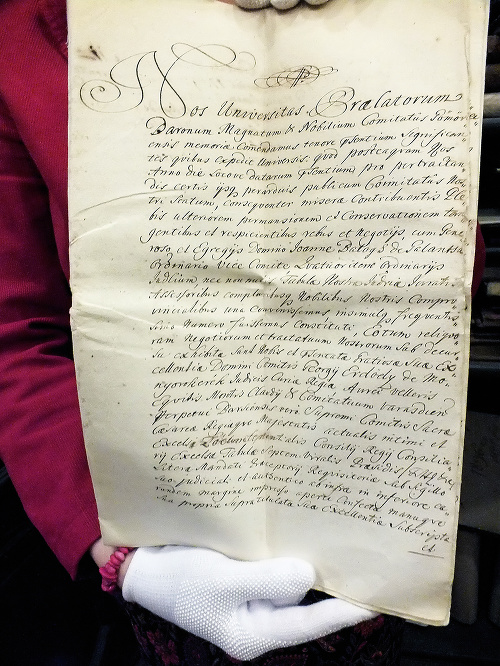 Nos Universitas Prælatorum
Baronum Magnatum & Nobilium Comitatus
ensis memoriæ Comendamus tenore pñsentium significan=
tes quibus expedit Universis. quod posteaquam Nos
Anno die Locove datarum pñsentium, pro pertractan
dis certis ipsq. perarduis publicum Comitatus Nos=
tri Statum, consequenter miseræ Contribuentis Ple
bis ulteriorem permansionem et Conservationem tan=
gentibus et respicientibus rebus et Negotijs cum Gene
roso et Egregijs Domino Joanne de
Ordinario Vice Comite Quatuor item Ordinarijs
Judlium, nec non Tabulæ Nostræ Judriæ Juratis
Assessoribus compluribusq. Nobilibus Nostris Compro
vincialibus una Convenissemus, inibique frequentis=
simo Numero fuissemus constituti. Eotum reliquo
rum Negotiorum et tractatuum Nostrorum sub decur
su exhibita sunt Nobis et pñsentata Gratiosæ Suæ Ex
cellentiæ Domini Comitis Georgij Erdödy de Mo=
nyorokerek Judicis Curiæ Regiæ Aurei Velleris
Equitis Montis Claudij & Comitatuum Varasdien
Perpetui Barsiensis vero Supremi Comitis Sacræ
Cæsareæ Regiæque Majestatis actualis intimi et
Excelsi Locumtenentialis Consilij Regij Consilia=
rij Excelsæ Tabulæ Septem Viralis Præsidis
Literæ Mandati Præceptorij Requisitoriæ sub Sigillo
suo judiciali et authentico in inferiore ea
rundem margine impresso aperte Confectæ manuque
sua propria suprattitulatæ suæ Excellentiæ Subscriptæ
et